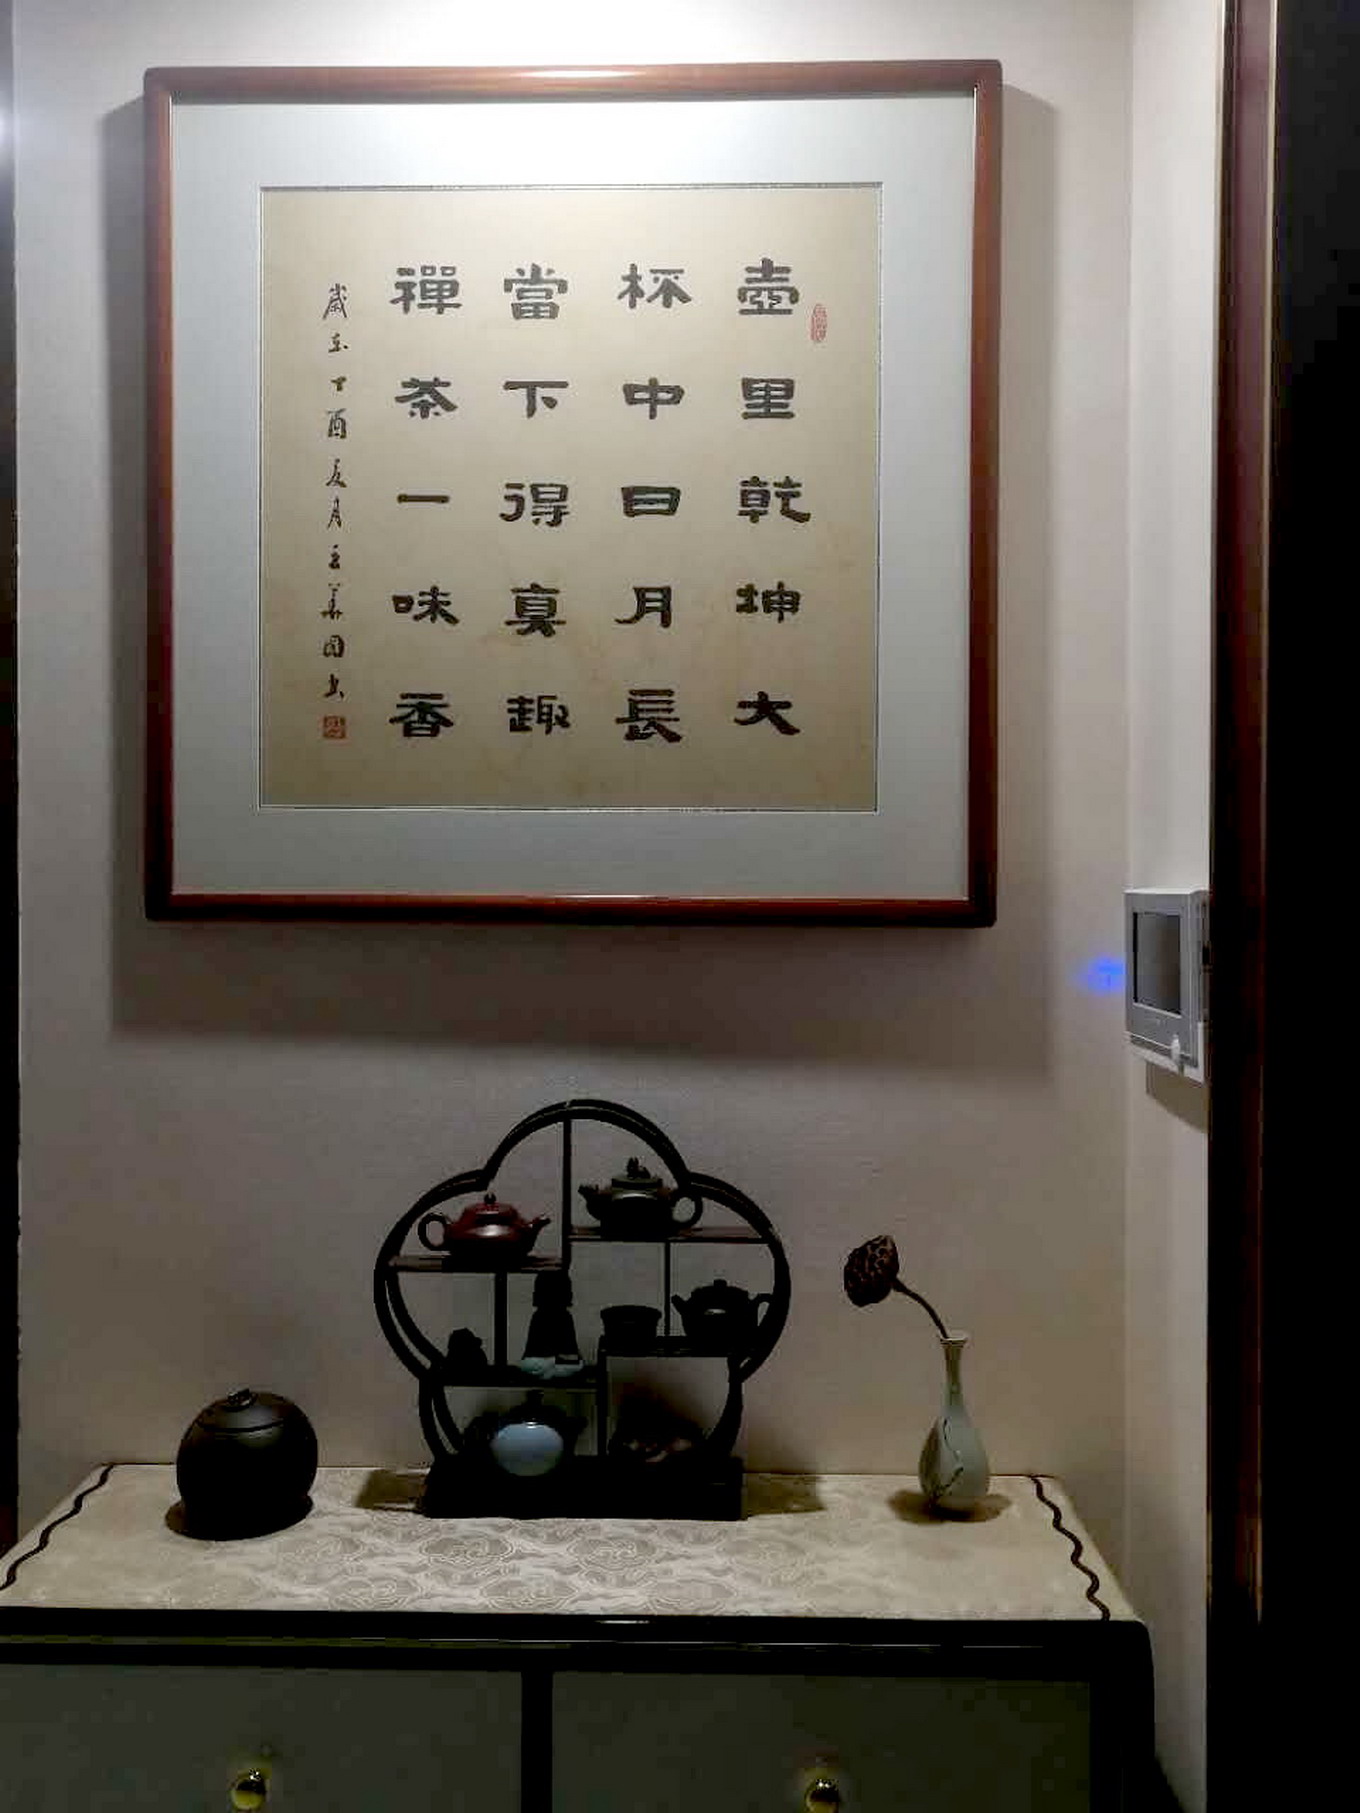 壺里乾坤大
杯中日月長
當下得真趣
禪茶一味香
歲在丁酉夏月王華國書